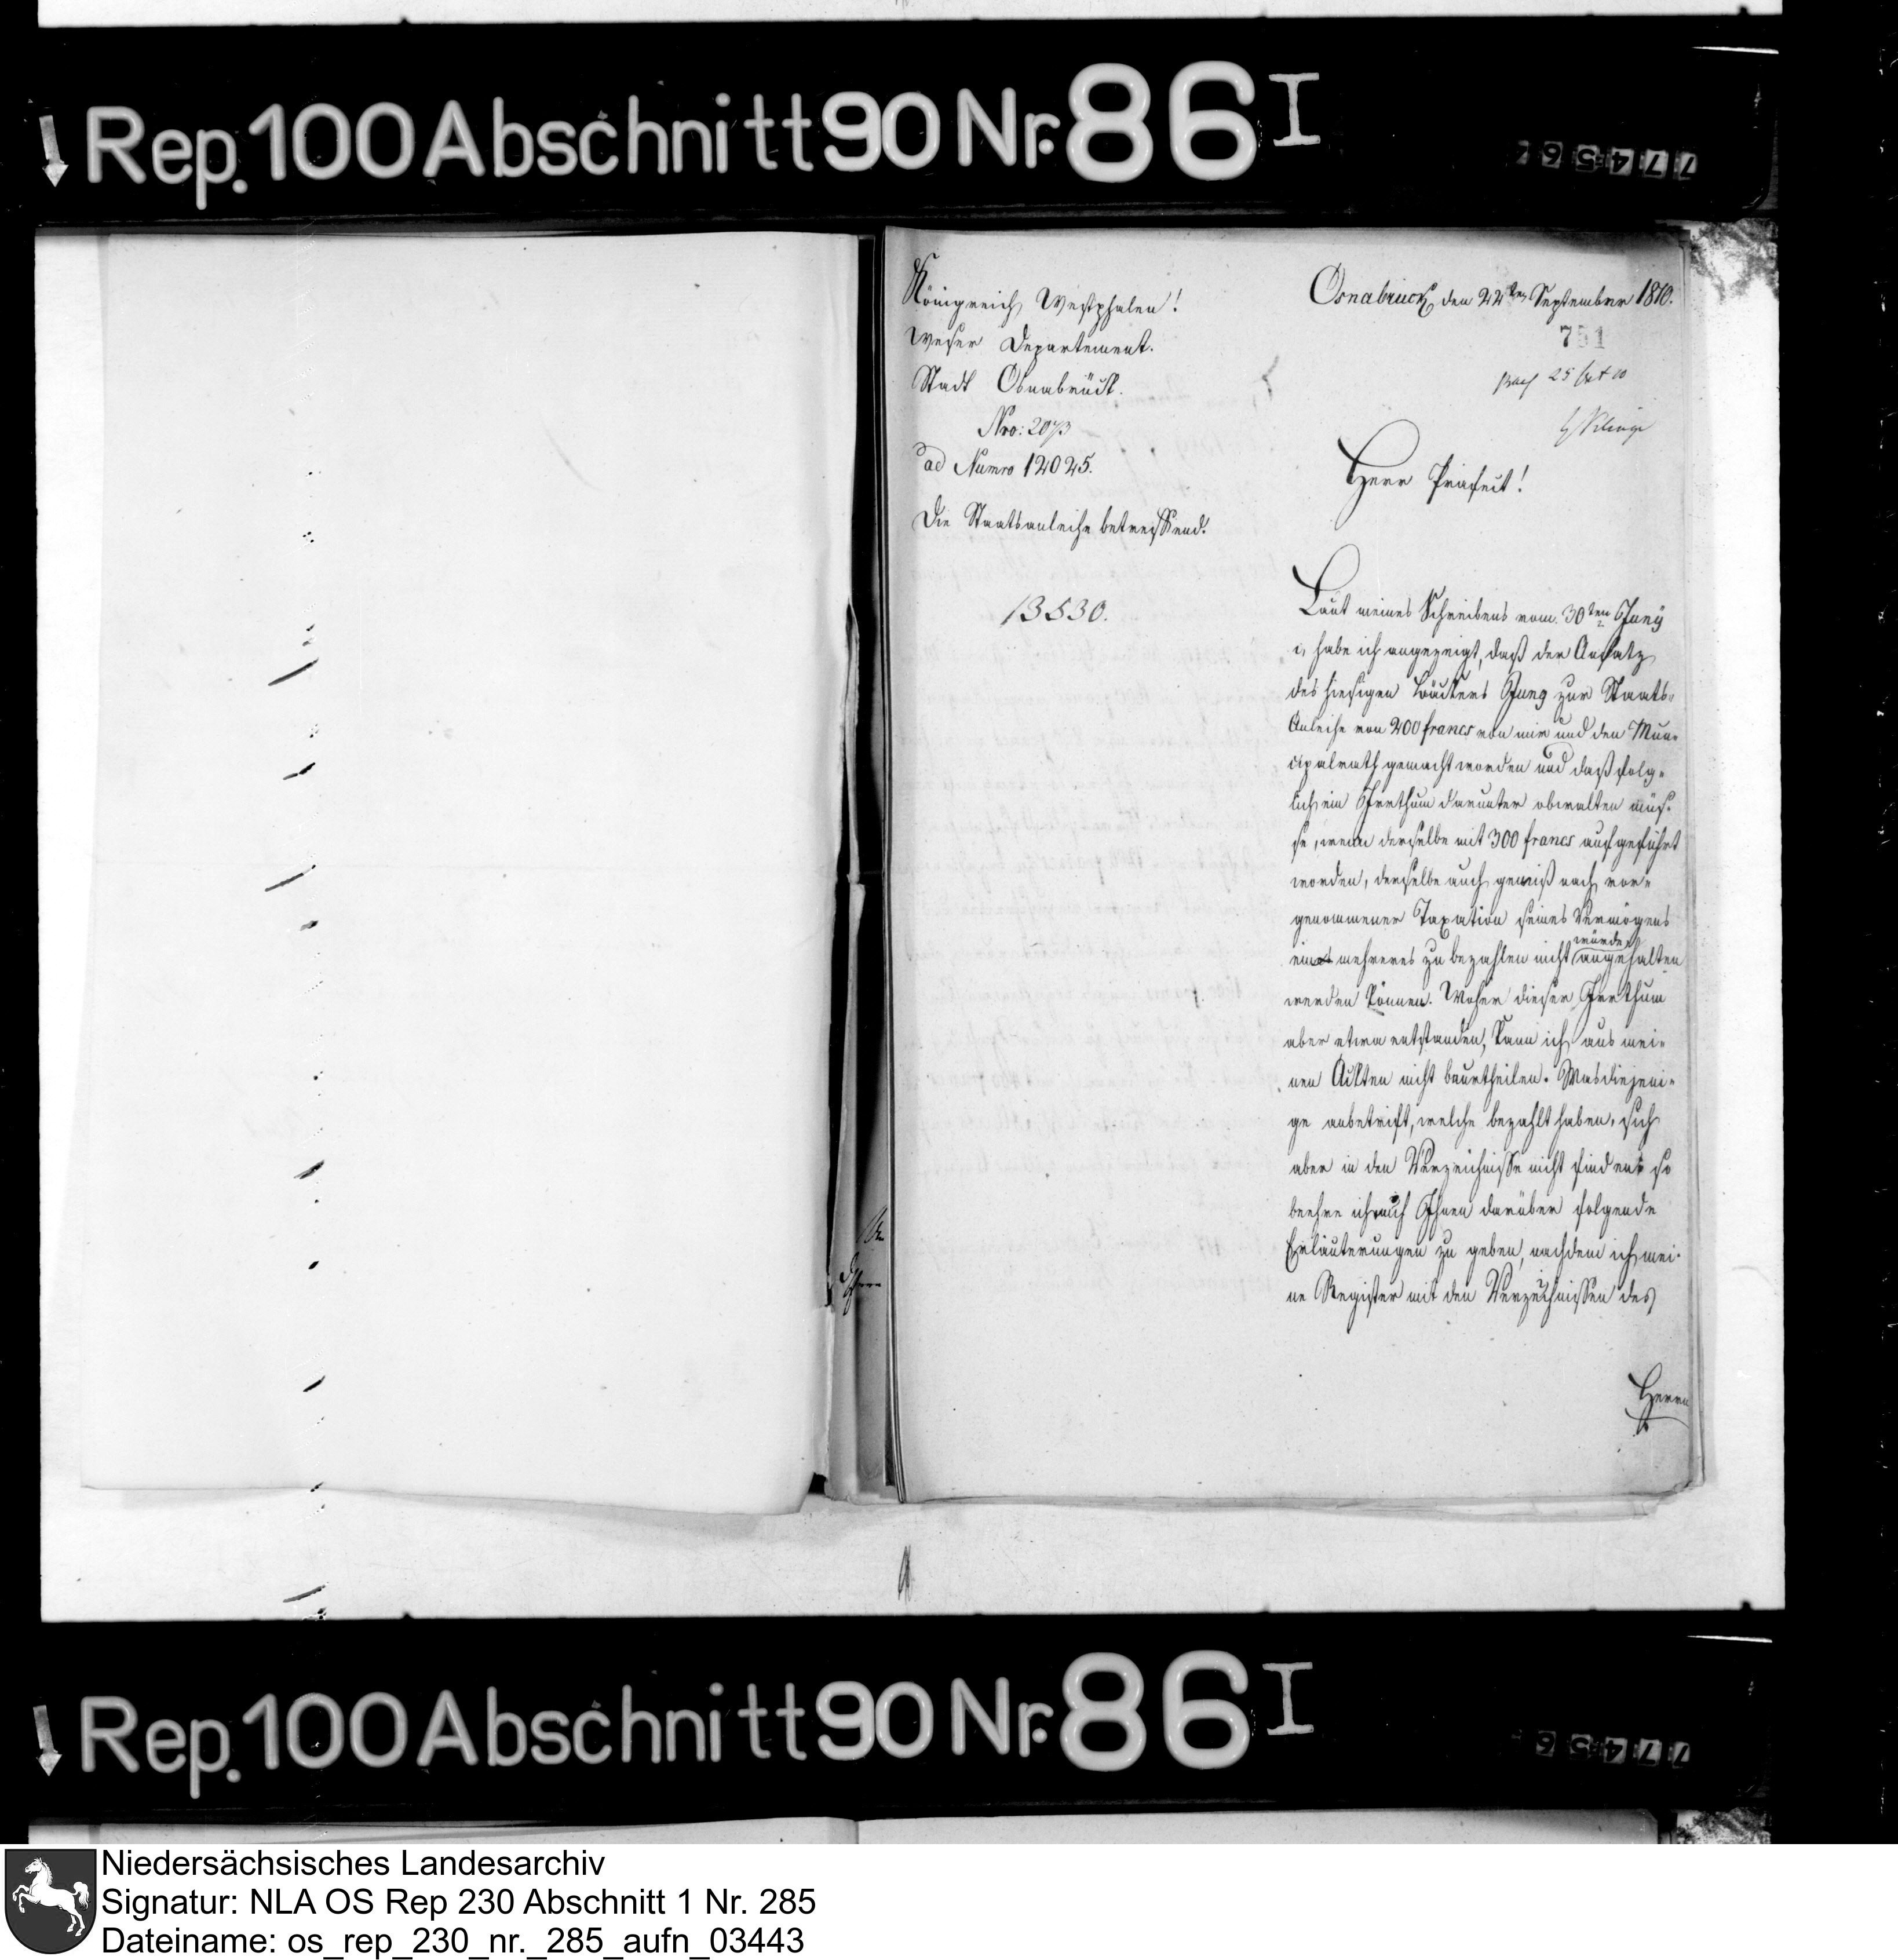 Rep. 100 Abschnitt 90 Nr. 86 I
Königreich Westphalen!
Weser Departement.
Stadt Osnabrück.
Nro: 2073
ad Numro 12025.
Die Staatsanleihe betreffend.
13530.
Osnabrück, den 22ten September 1810.
751
25
Herr Präfect!
Laut meines Schreibens vom 30ten Juny
habe ich angezeigt, daß der Ansatz
des hiesigen Bäckers Jung zur Staats-
Anleihe von 200 francs von mir und den Mun-
cipalrath gemacht worden und daß folg-
lich ein Irrthum darunter obwalten müs-
se, wenn derselbe mit 300 francs aufgeführt
worden, derselbe auch gewiß nach vor-
genommener Taxation seines Vermögens
würde
ein mehreres zu bezahlen nicht angehalten
werden können. Woher dieser Irrthum
aber etwa entstanden, kann ich aus mei-
nen Ackten nicht beurtheilen. Was diejeni-
ge anbetrift, welche bezahlt haben, sich
aber in den Verzeichnisse nicht finden so
beehre ich mich Ihnen darüber folgende
Erläuterungen zu geben, nachdem ich mei-
ne Register mit den Verzeichnissen des
Herrn
Rep. 100 Abschnitt 90 Nr. 86 I
Niedersächsisches Landesarchiv
Signatur: NLA OS Rep 230 Abschnitt 1 Nr. 285
Dateiname: os_rep_230_nr._285_aufn_03443